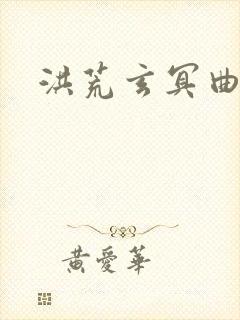 洪荒玄冥曲
黄爱华